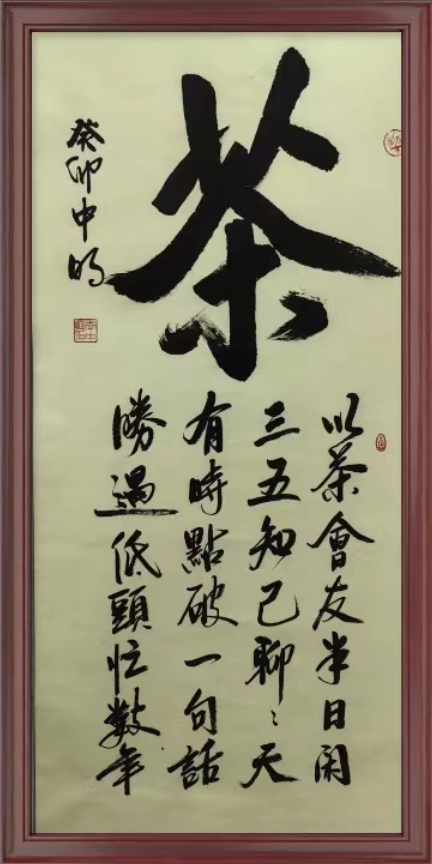 茶
以茶會友半日閑
三五知己聊〻天
有時點破一句話
勝過低頭忙數年
癸卯中明